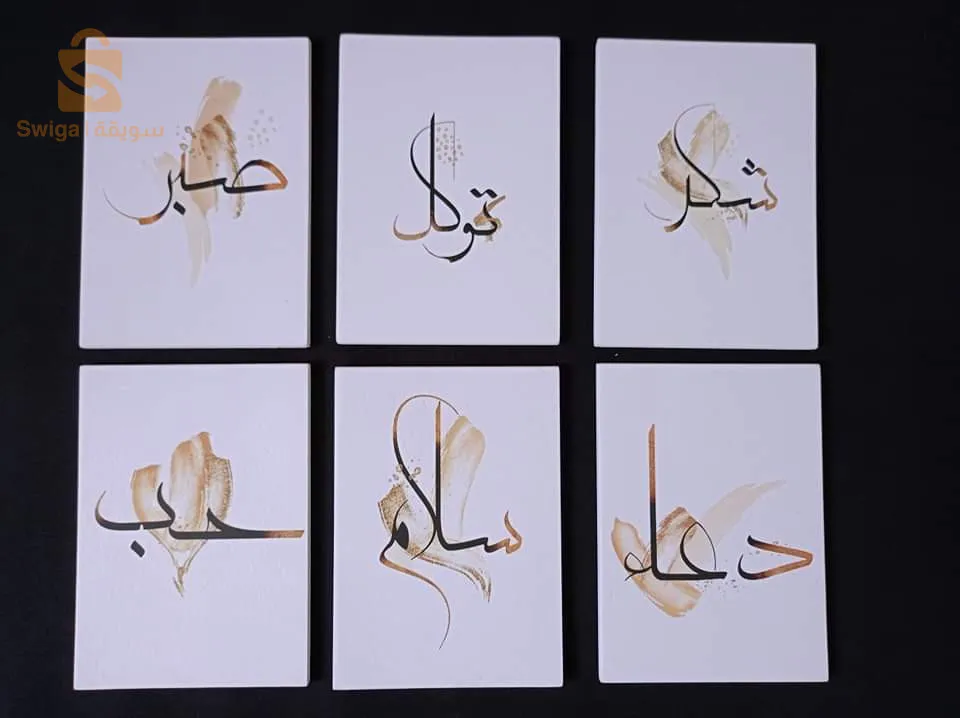 Swiga | سويقة
شكر
توكل
صبر
دعاء
سلام
حب